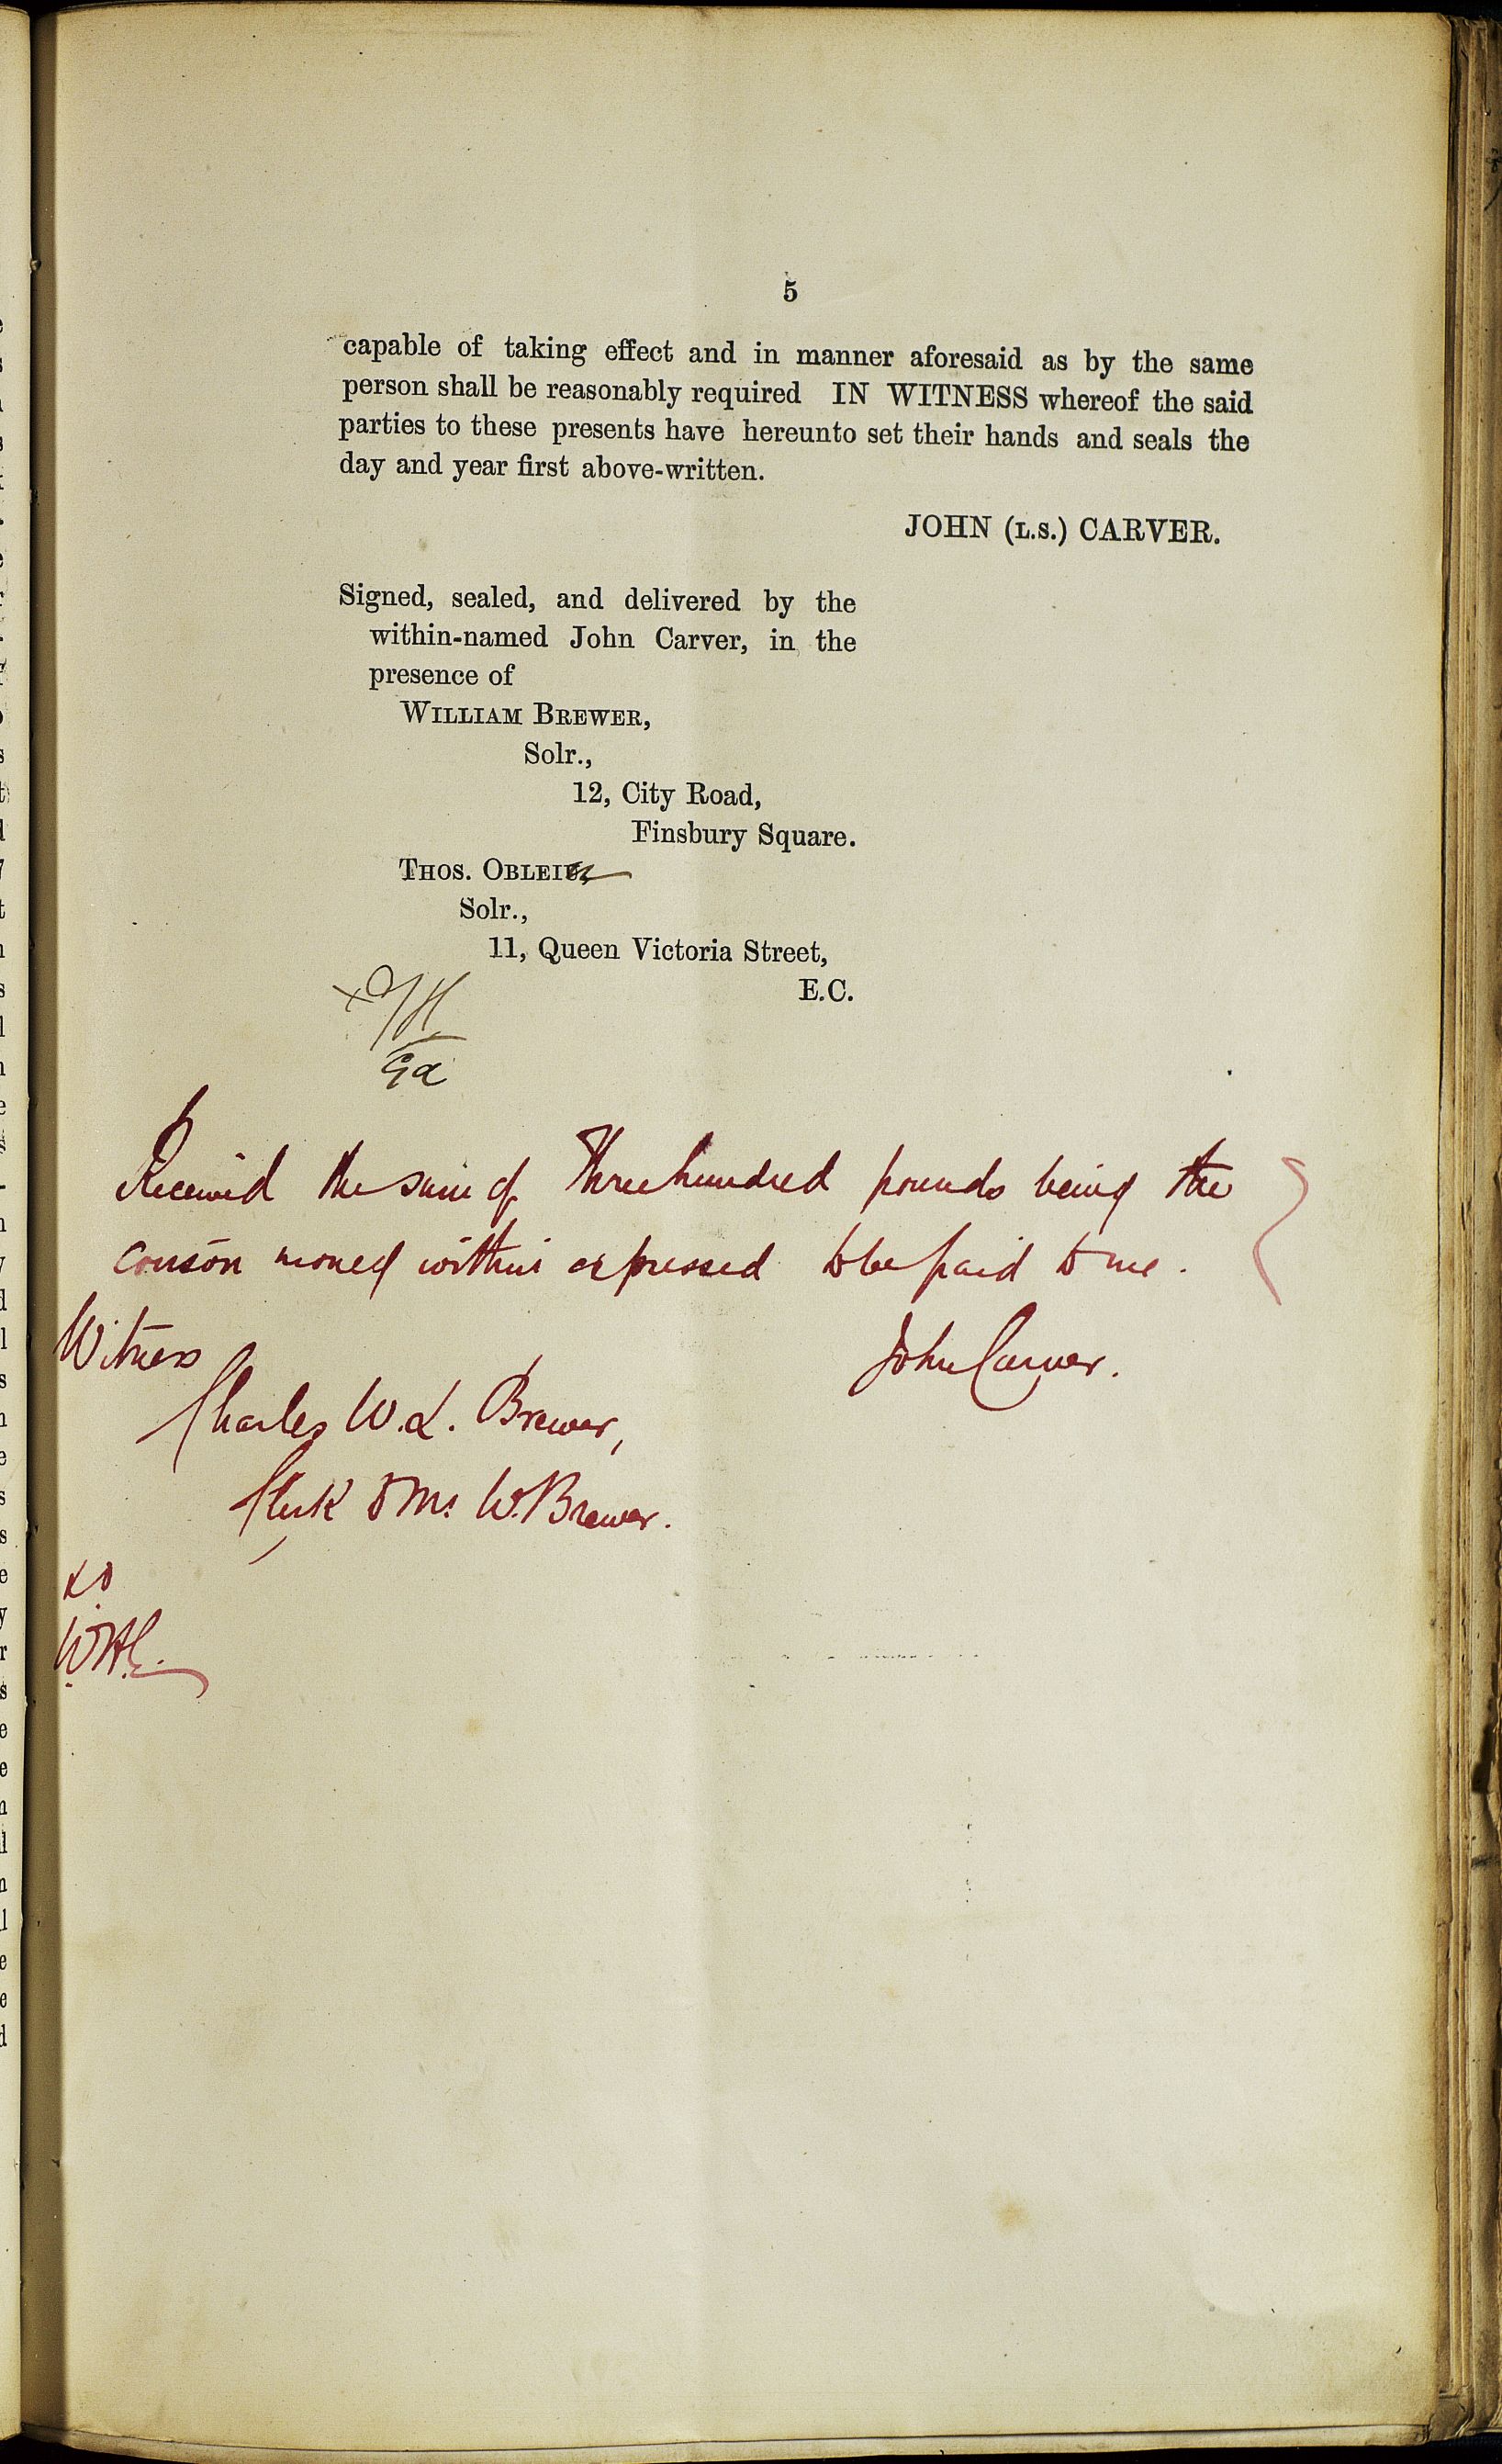 5
capable of taking effect and in manner aforesaid as by the same
person shall be reasonably required IN WITNESS whereof the said
parties to these presents have hereunto set their hands and seals the
day and year first above-written.
JOHN (L.S.) CARVER.
Signed, sealed, and delivered by the
within-named John Carver, in the
presence of
WILLIAM BREWER,
Solr.,
12, City Road,
Finsbury Square.
THOS.
Solr.,
11, Queen Victoria Street,
E.C.
Received the sum of Three hundred pounds being the
conson money within expressed to be paid to me.
Witness
John Carver.
Charles W. L. Brewer,
Clerk to Mr. W. Brewer.